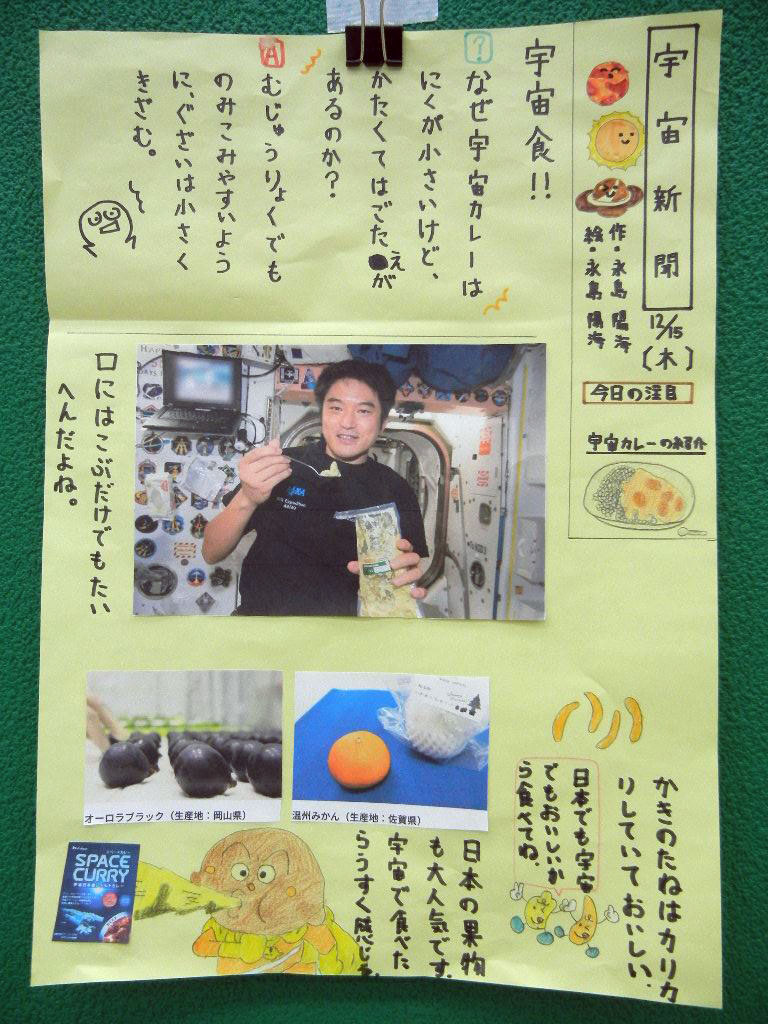 宇宙新聞
12/15
(木)
作・永島 陽海
絵・永島 陽海
今日の注目
宇宙カレーの紹介
宇宙食!!
? なぜ宇宙カレーは
にくが小さいけど、
かたくてはごたえが
あるのか?
A むじゅうりょくでも
のみこみやすいよう
に、ぐざいは小さく
きざむ。
口にはこぶだけでもたい
へんだよね。
オーロラブラック（生産地：岡山県）
温州みかん（生産地：佐賀県）
かきのたねはカリカ
リしていておいしい。
日本でも宇宙
でもおいしいか
ら食べてね。
日本の果物
も大人気です。
宇宙で食べた
らうすく感じ
SPACE
CURRY